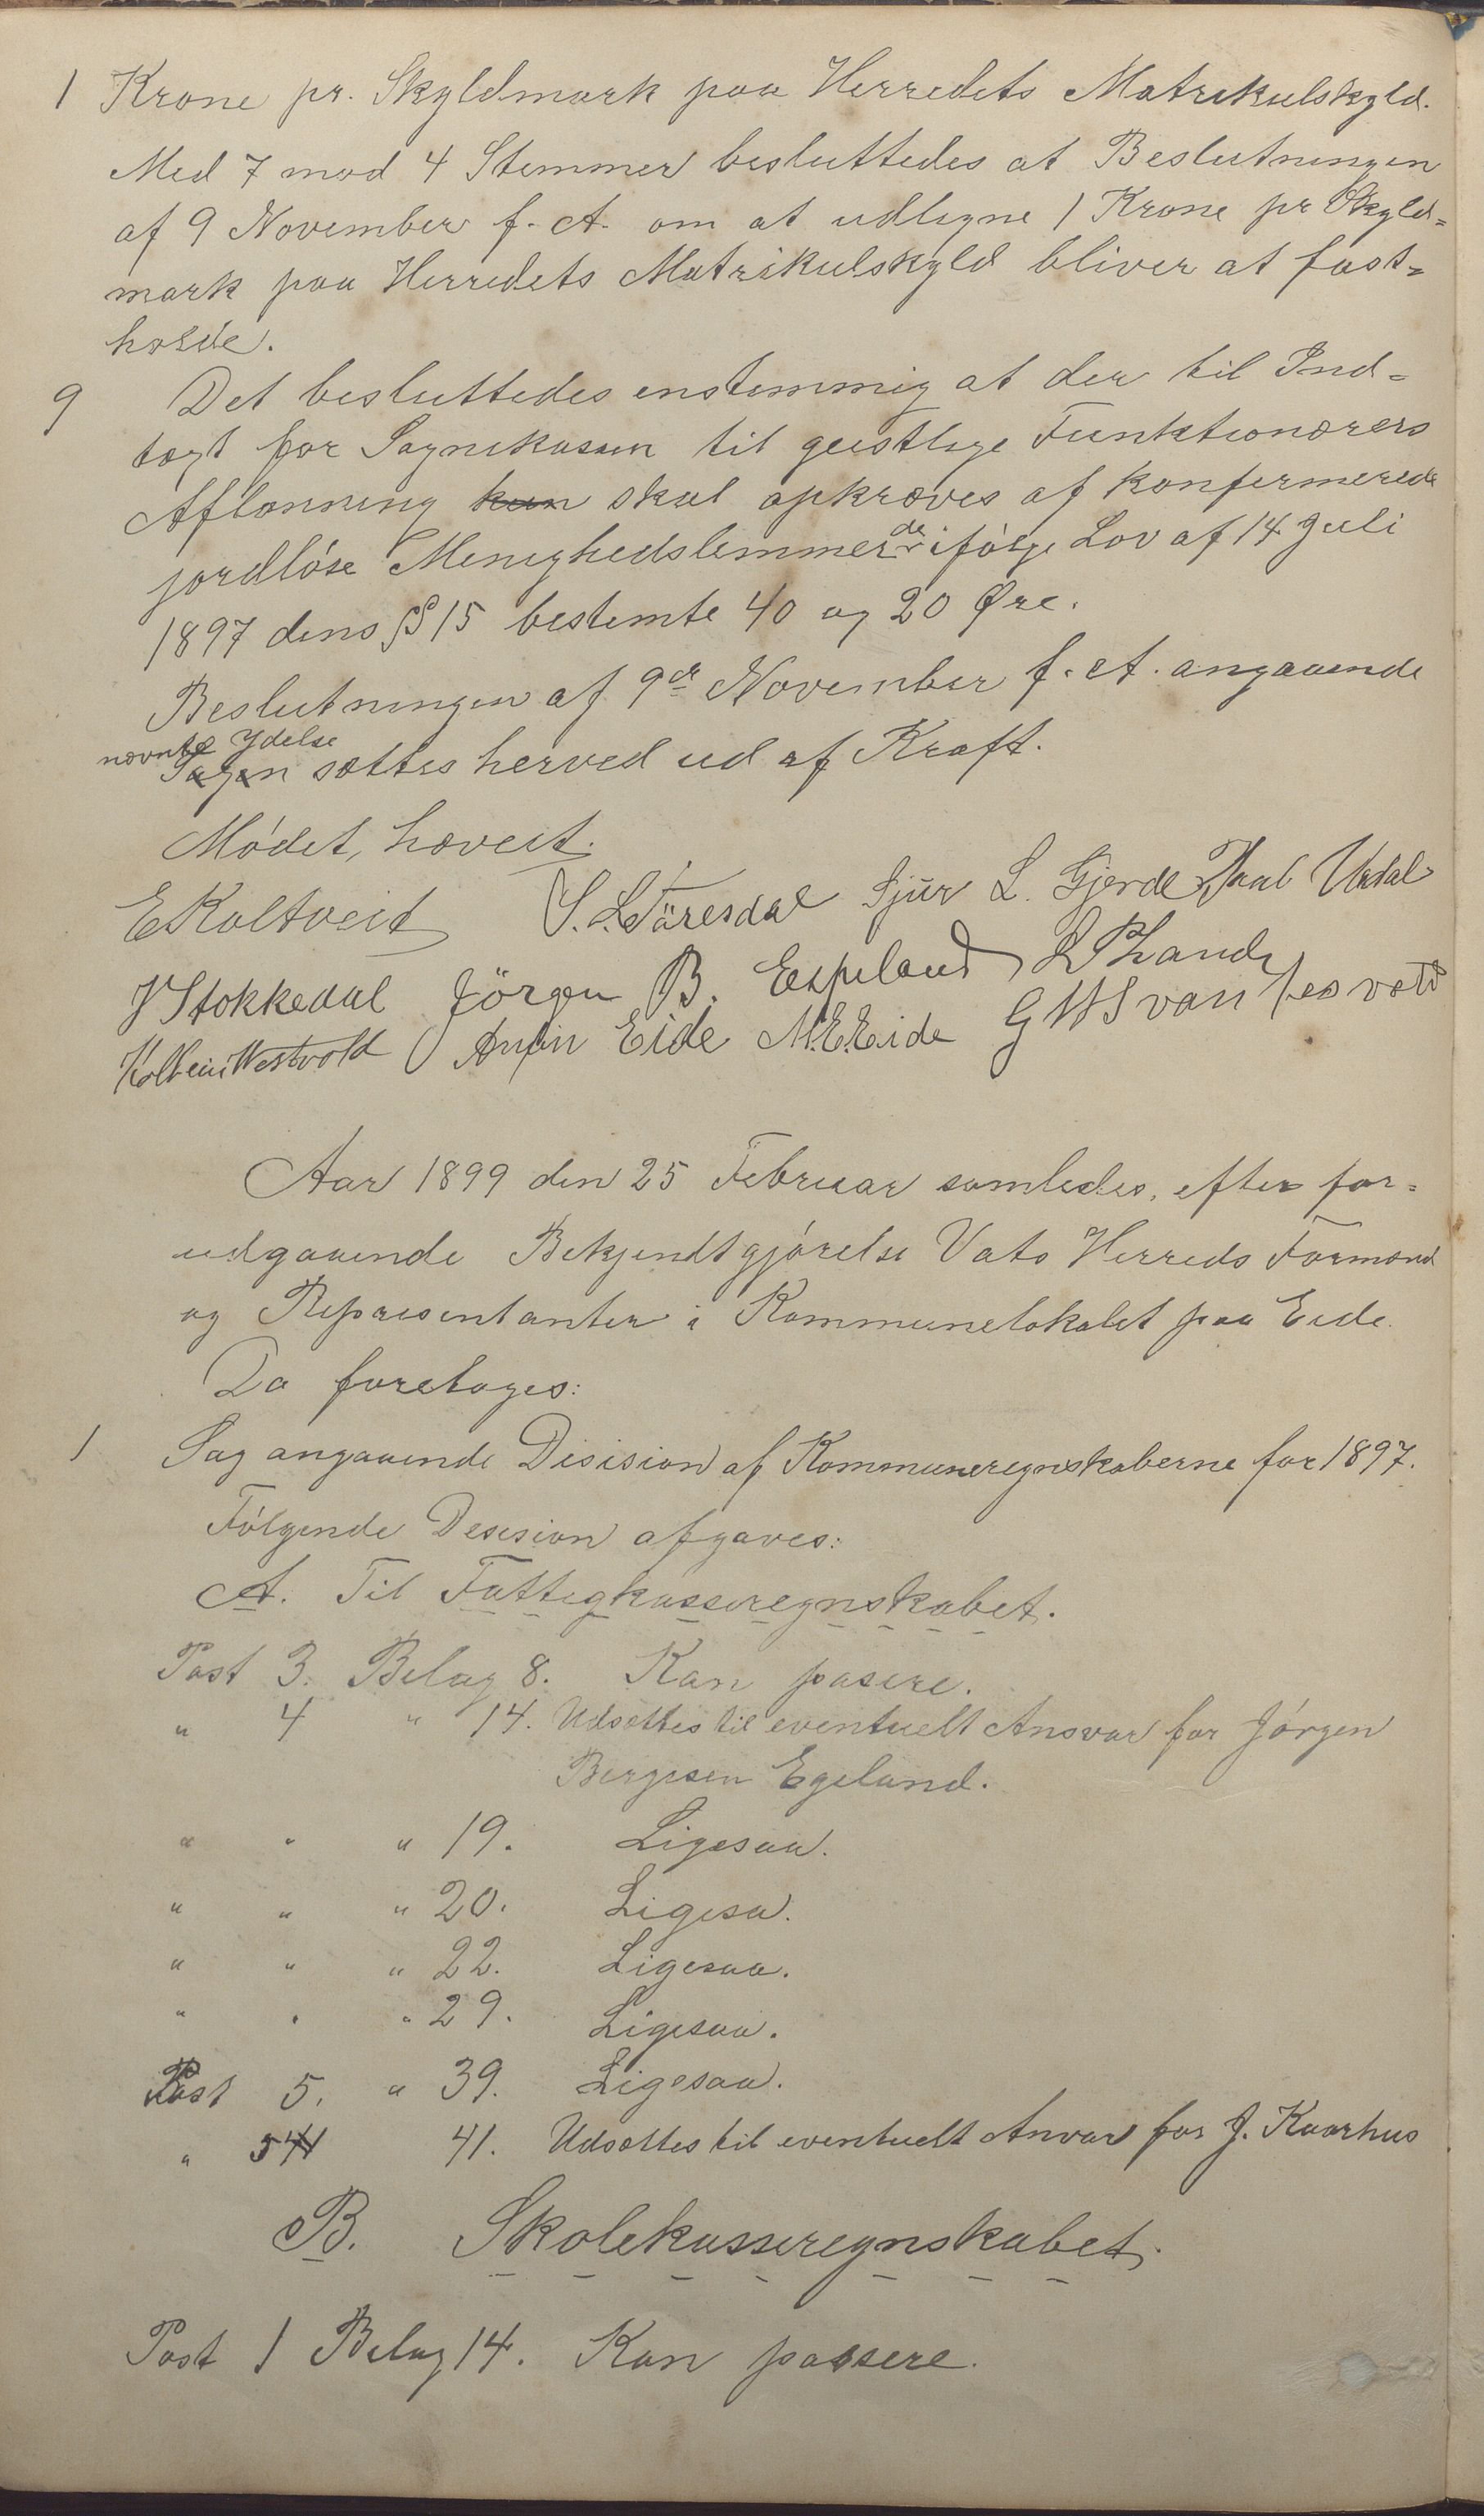 1 Krone pr. Skyldmark paa Herredets Matrikulskyld.
Med 7 mod 4 Stemmer besluttedes at Beslutningen
af 9 November f. A. om at udligne 1 Krone pr Skyld=
mark paa Herredets Matrikulskyld bliver at fast=
holde.
9 Det besluttedes enstemmig at der til Ind=
tægt for Sognekassen til geistlige Funktionærers
Aflønning kun skal opkræves af konfirmerede
jordløse Menighedslemmer de ifølge Lov af 14 Juli
1897 dens § 15 bestemte 40 og 20 Øre.
Beslutningen af 9de November f. A. angaaende
nævnte Ydelse
Sagen sættes herved ud af Kraft.
Mødet hævet.
E Koltveit S. L. Färesdal Sjur L. Gjerde Paul Urdal
J Stokkedal Jörgen B. Espeland L P Lande
Kolbein Westvold Amin Eide M. E. Eide G W Svan
Aar 1899 den 25 Februar samledes, efter for=
udgaaende Bekjendtgjørelse Vats Herreds Formænd
og Repræsentanter i Kommunelokalet paa Eide.
Da foretoges:
1 Sag angaaende Disision af Kommuneregnskaberne for 1897.
Følgende Desision afgaves:
A. Til Fattigkasseregnskabet.
Post 3. Belag 8. Kan pasere.
" 4 " 14. Udsættes til eventuelt Ansvar for Jørgen
Bergesen Egeland.
" " " 19. Ligesaa.
" " " 20. Ligesa.
" " " 22. Ligesaa.
" " " 29. Ligesaa.
Post 5. " 39. Ligesaa.
" 5 41. Udsættes til eventuelt Anvar for J. Kaarhus
B. Skolekasseregnskabet.
Post 1 Belag 14. Kan passere.